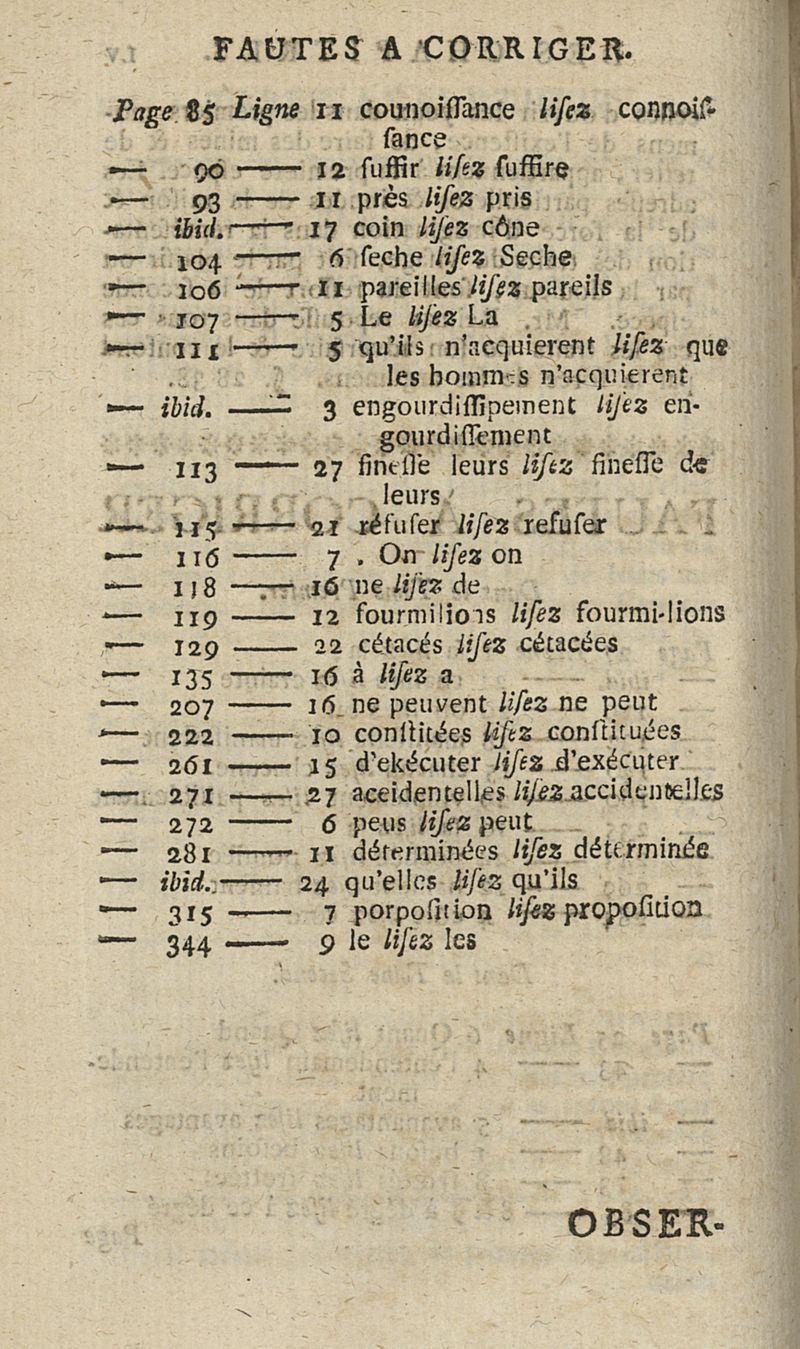 FAUTES A CORRIGER.
Page 85 Ligne 11 counoiſſance liſez connoiſ-
ſance
— 90 — 12 ſuffir liſez ſuffire
— 93 — 11 près liſez pris
— ibid. — 17 coin liſez cône
— 104 — 6 ſeche liſez Seche
— 106 — 11 pareilles liſez pareils
— 107 — 5 Le liſez La
— 111 — 5 qu'ils n'acquierent liſez que
les hommes n'acquierent
— ibid. — 3 engourdiſſipement liſez en-
gourdiſſement
— 113 — 27 fineſſe leurs liſez fineſſe de
leurs
— 115 — 21 réfuſer liſez refuſer
— 116 — 7 . On liſez on
— 118 — 16 ne liſez de
— 119 — 12 fourmilions liſez fourmi-lions
— 129 — 22 cétacés liſez cétacées
— 135 — 16 à liſez a
— 207 — 16 ne peuvent liſez ne peut
— 222 — 10 conſtitées liſez conſtituées
— 261 — 15 d'ekécuter liſez d'exécuter
— 271 — 27 aceidentelles liſez accidentelles
— 272 — 6 peus liſez peut
— 281 — 11 déterminées liſez déterminée
— ibid. — 24 qu'elles liſez qu'ils
— 315 — 7 porpoſition liſez propoſition
— 344 — 9 le liſez les
OBSER-